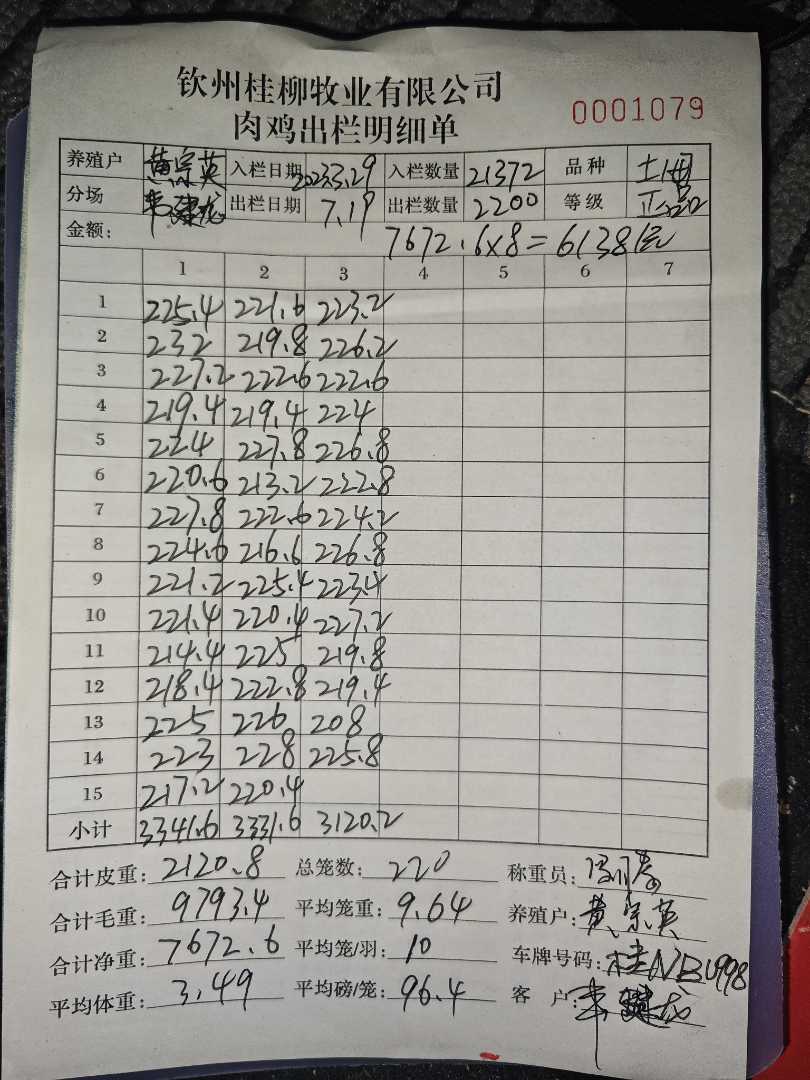 钦州桂柳牧业有限公司
肉鸡出栏明细单
0001079
养殖户 黄宗英 入栏日期 2023.3.29 入栏数量 21372 品种
分场 韦建龙 出栏日期 7.19 出栏数量 2200 等级 正品
金额: 7672.6×8=61381元
1 2 3 4 5 6 7
1 225.4 221.6 223.2
2 232 219.8 226.2
3 227.2 222.6 222.6
4 219.4 219.4 224
5 224 227.8 226.8
6 220.6 213.2 222.8
7 227.8 222.6 224.2
8 224.6 216.6 226.8
9 221.2 225.4 223.4
10 221.4 220.4 227.2
11 214.4 225 219.8
12 218.4 222.8 219.4
13 225 226 208
14 223 228 225.8
15 217.2 220.4
小计 3341.6 3331.6 3120.2
合计皮重: 2120.8 总笼数: 220 称重员:
合计毛重: 9793.4 平均笼重: 9.64 养殖户: 黄宗英
合计净重: 7672.6 平均笼/羽: 10 车牌号码: 桂NBU998
平均体重: 3.49 平均磅/笼: 96.4 客户: 韦建龙